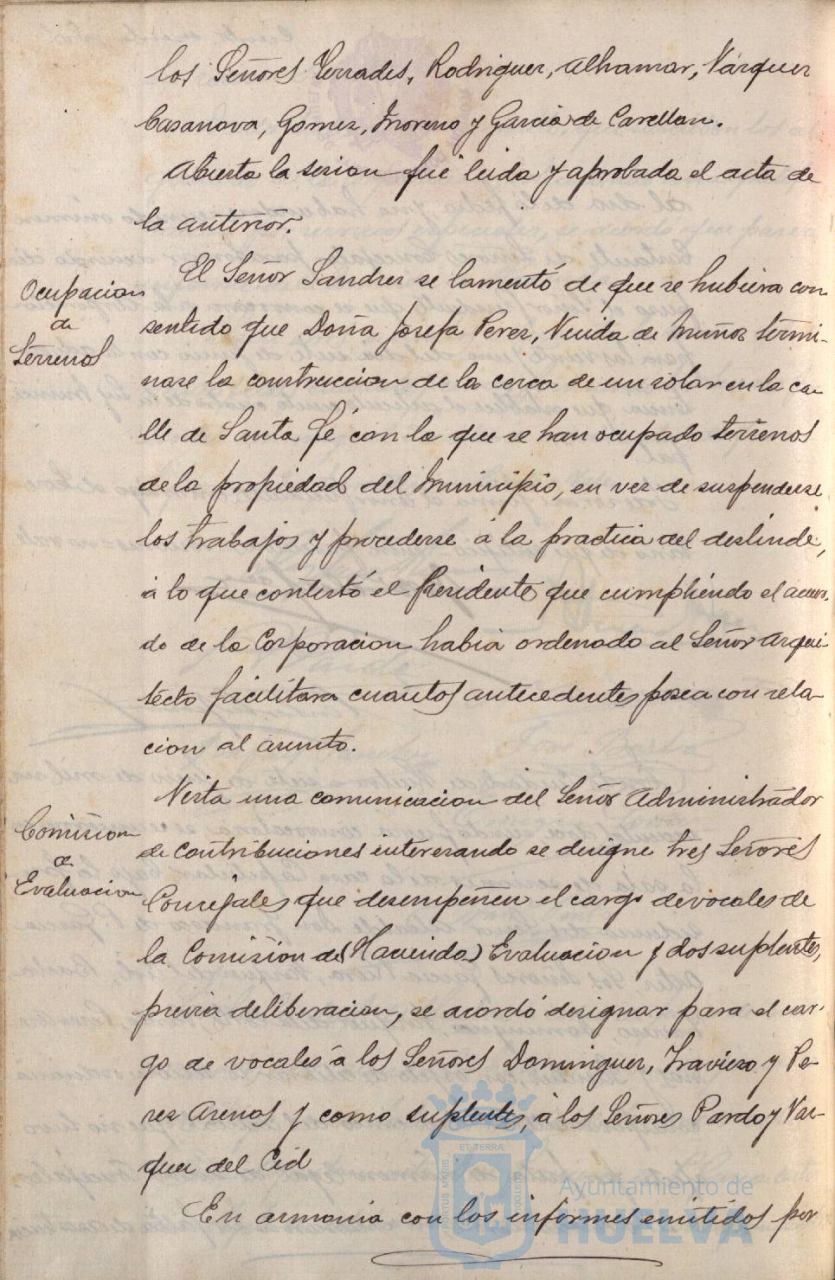 los Señores Terrades, Rodriguez, Alhamar, Vazquez
Casanova, Gomez, Moreno y Garcia de Carellan.
Abierta la sesion fué leida y aprobada el acta de
la anterior.
Ocupacion
de
Terrenos
El Señor Sandrer se lamentó de que se hubiera con
sentido que Doña Josefa Perez, Viuda de Muñoz termi-
nase la construccion de la cerca de un solar en la ca-
lle de Santa Fé con lo que se han ocupado terrenos
de la propiedad del Municipio, en vez de suspenderse
los trabajos y procederse á la practica del deslinde,
á lo que contestó el Presidente que cumpliendo el acuer-
do de la Corporacion habia ordenado al Señor Arqui-
tecto facilitara cuantos antecedentes posea con rela-
cion al asunto.
Comision
de
Evaluacion
Vista una comunicacion del Señor Administrador
de contribuciones interesando se designe tres Señores
Concejales que desempeñen el cargo de vocales de
la Comision de (Hacienda) Evaluacion y dos suplentes,
previa deliberacion, se acordó designar para el car-
go de vocales á los Señores Dominguez, Travieso y Pe-
rez Arenas y como suplentes, á los Señores Pardo y Vaz-
quez del Cid
En armonia con los informes emitidos por
ET TERRA
Ayuntamiento de
HUELVA